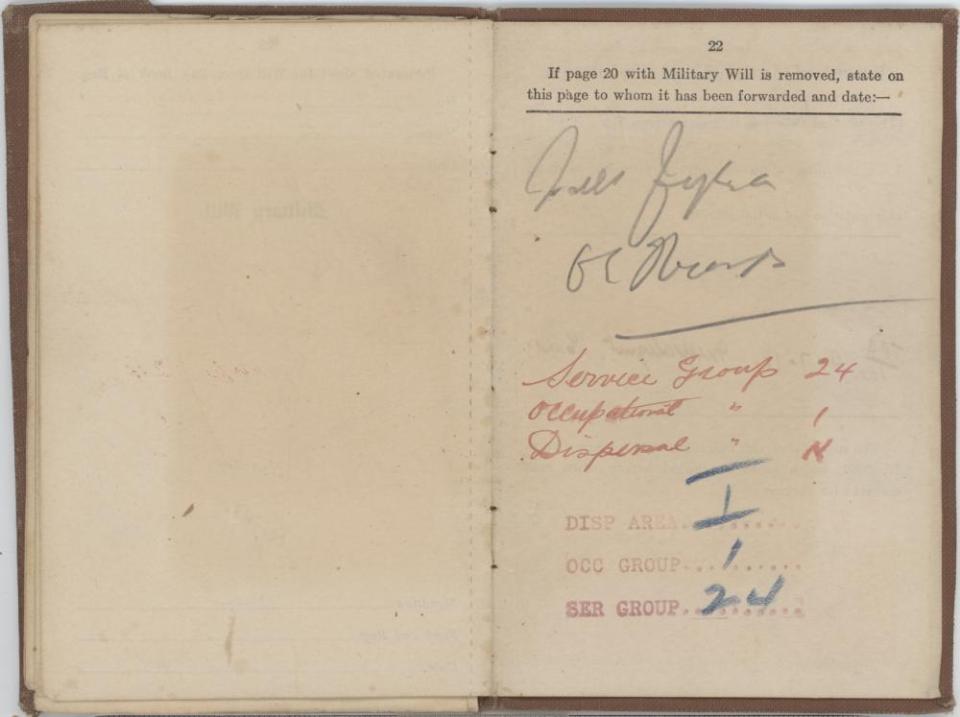 22
If page 20 with Military Will is removed, state on
this page to whom it has been forwarded and date:—
OC Records
Service Group 24
Occupational " 1
Dispersal "
DISP AREA.. I
OCC GROUP... 1
SER GROUP. 24